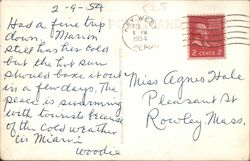 2-9-54
Had a fine trip
down. Marion
still has her cold
but the hot sun
should bake it out
in a few days. The
place is swarming
with tourists because
of the cold weather
"in Miami"
Woodie
KEY WEST
1 PM
1954
2 CENTS 2
Miss Agnes Hale
Pleasant St
Rowley Mass.